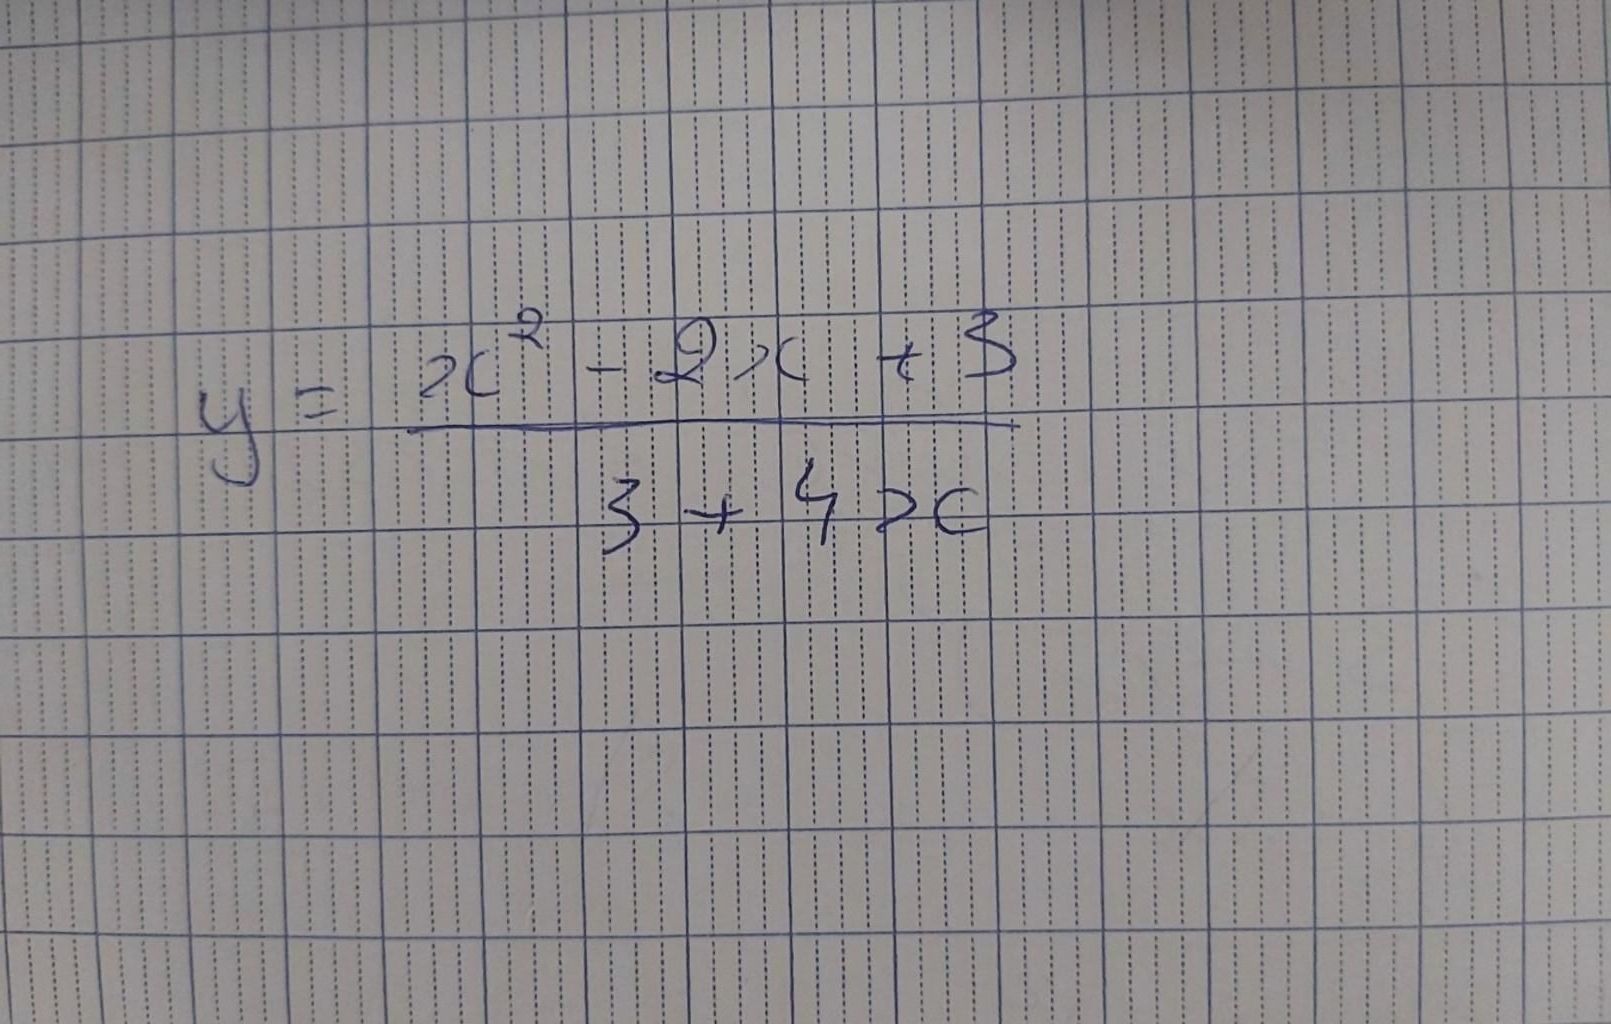 y = \frac{x^2 - 2x + 3}{3 + 4x}